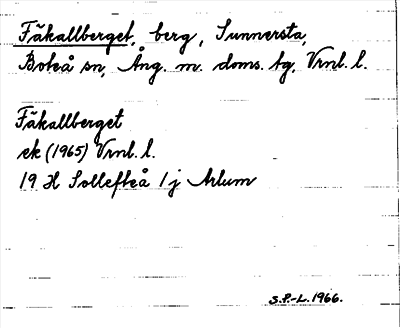 Fäkallberget, berg, Sunnersta,
Boteå sn, Ång. m. doms. tg, Vrnl. l.
Fäkallberget
ek (1965) Vrnl. l.
19 H Sollefteå 1 j Arlum
S.P.-L. 1966.